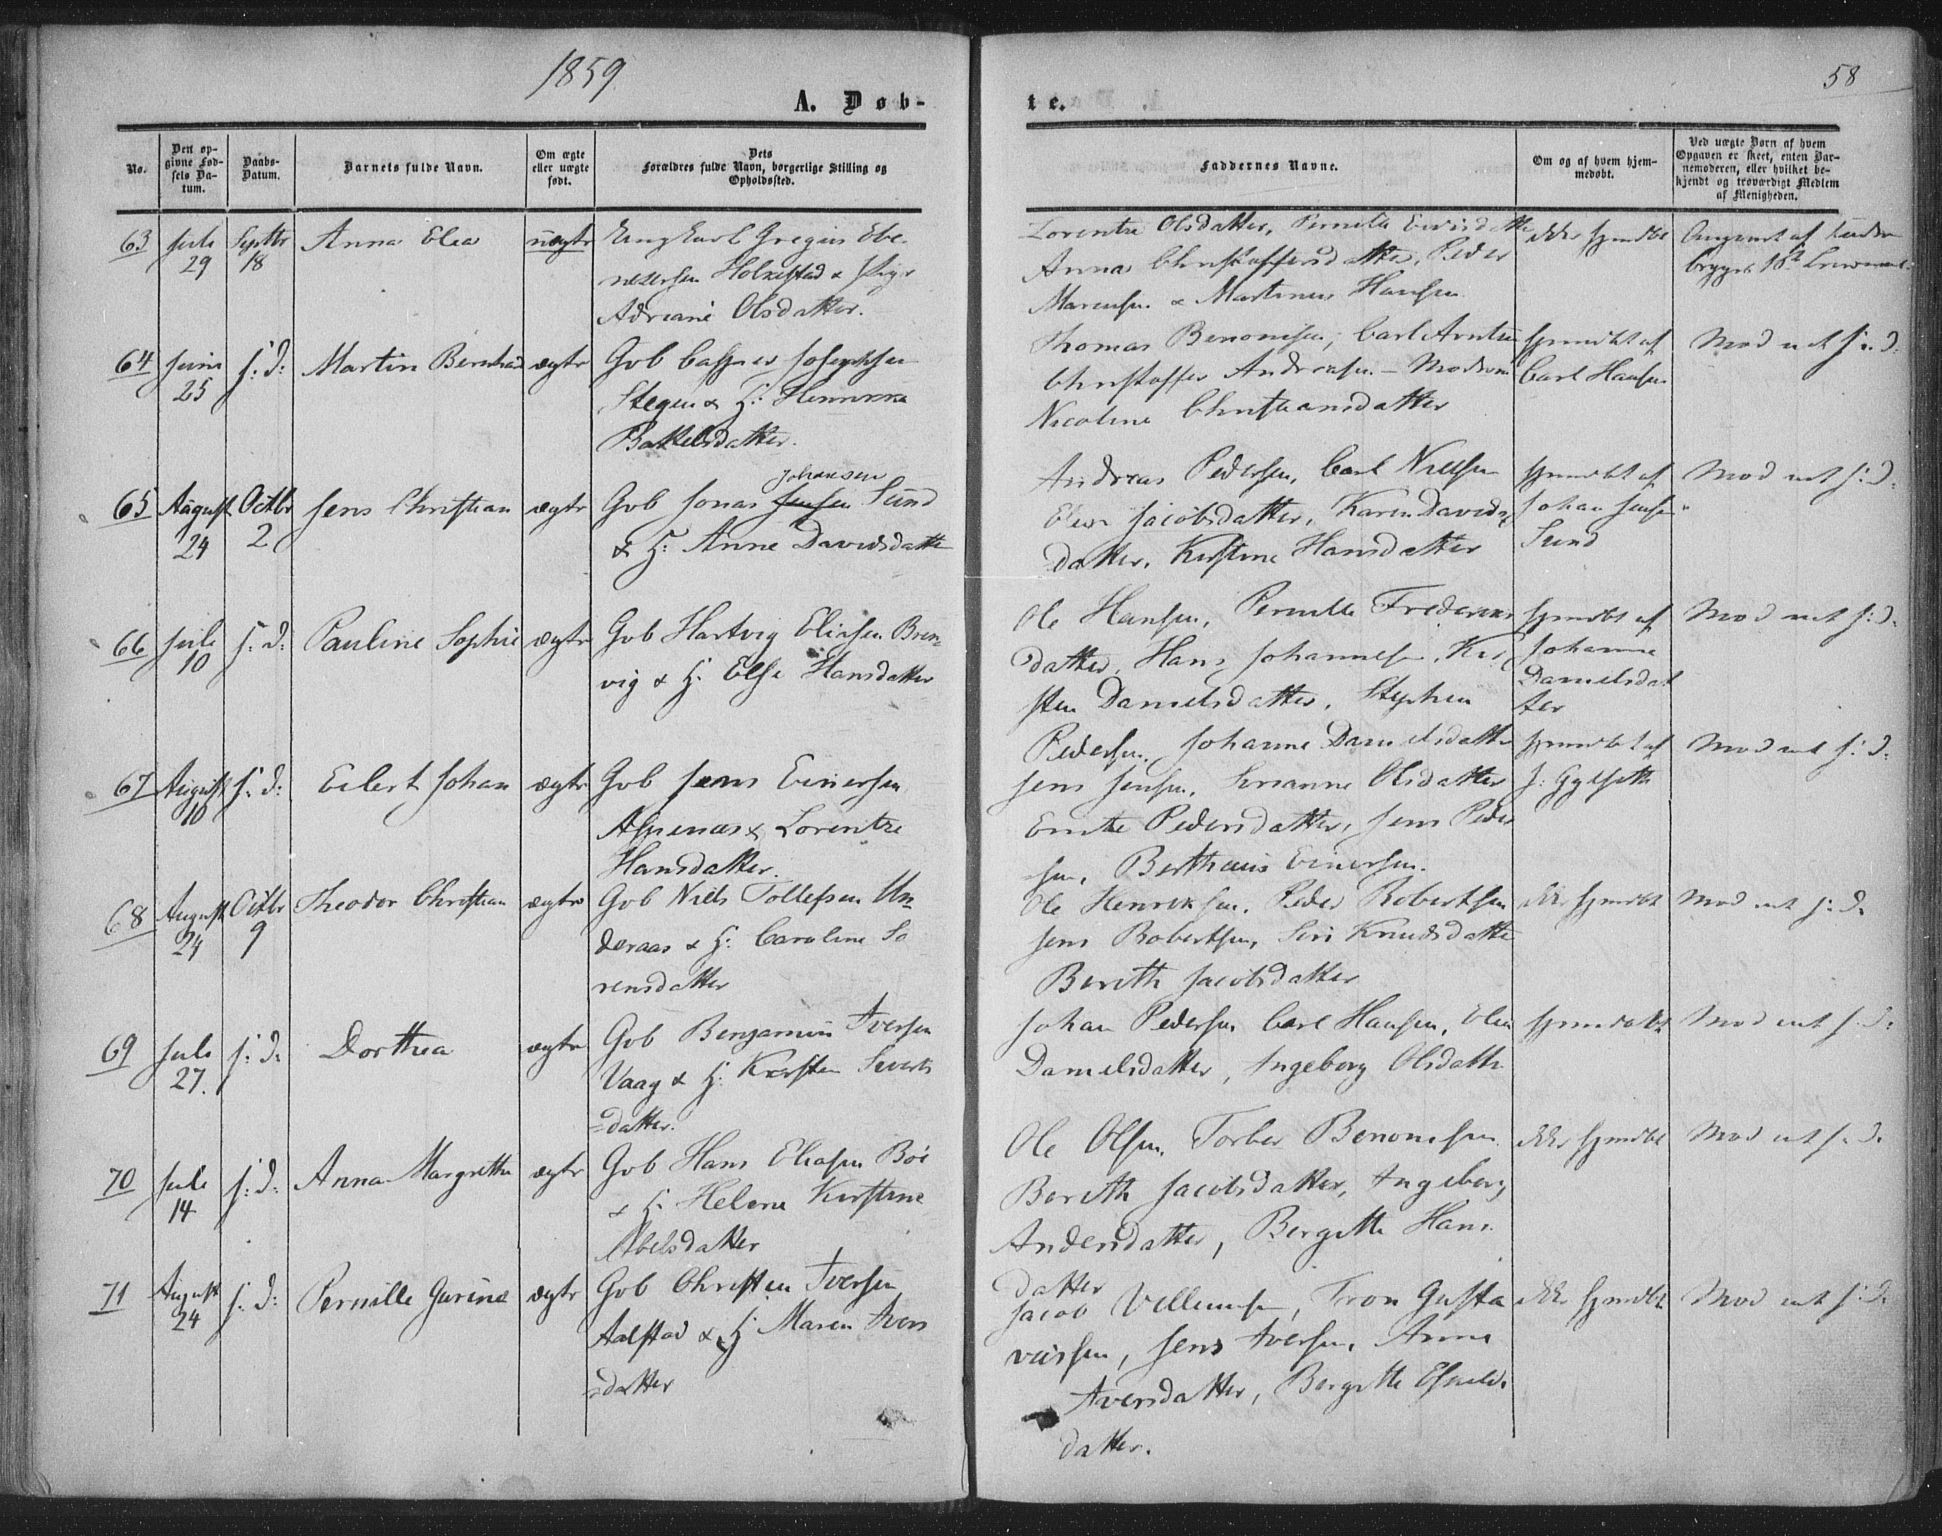 1859
58
A. Døb-
te.
No.
Den op-
givne Fød-
sels Da-
tum.
Daabs-
Datum.
Barnets fulde Navn.
Om ægte
eller uægte
født.
Dets
Forældres fulde Navn, borgerlige Stilling og
Opholdssted.
Faddernes Navne.
Om og af hvem hjem-
medøbt.
Ved uægte Børn af hvem
Opgaven er skeet, enten Bar-
nemoderen, eller hvilket be-
kjendt og troværdigt Medlem
af Menigheden.
63
Juli
29
Septbr
18
Anna Elea
uægte
Ungkarl Gregus Ebe-
nezersen Holkestad & Pige
Adriane Olsdatter.
Lorentze Olsdatter, Pernille
Anna Christoffersdatter, Peder
Marcusen & Martinus Hansen
ikke hjmdbt
64
Juni
25
s: D:
Martin Bernhard
ægte
Gbr Casper Josephsen
Stegen & H: Henrikka
Bottelsdatter.
Thomas Benonisen, Carl Arntsen
Christoffer Andreasen - Moderen
Nicoline Christiansdatter
hjmdbt af
Carl Hansen
Mod ut s: D:
65
August
24
Octbr
2
Jens Christian
ægte
Johansen
Gbr Jonas Jensen Sund
& H: Anne Davidsdatter
Andreas Pedersen, Carl Nielsen
Elen Jacobsdatter, Karen Davids
datter, Kirstine Hansdatter
hjmdbt af
Johan Jensen
Sund
Mod ut s: D:
66
Juli
10
s: D:
Pauline Sophie
ægte
Gbr Hartvig Eliasen Bren-
vig & H: Else Hansdatter
Ole Hansen, Pernille Frederiks
datter, Hans Johannesen, Kir
sten Danielsdatter, Stephen
Pedersen, Johanne Danielsdatter
hjmdbt af
Johanne
Danielsdat
ter
Mod ut s: D:
67
August
10
s: D:
Eilert Johan
ægte
Gbr Jens Einersen
Aspenæs & Lorentze
Hansdatter.
Jens Jensen, Susanne Olsdatter
Emte Pedersdatter, Jens Peder
sen, Berthæus Einersen.
hjmdbt af
J: Gylseth
Mod ut s: D:
68
August
24
Octbr
9
Theodor Christian
ægte
Gbr Niels Tollefsen Un
deraas & H: Caroline So
rensdatter
Ole Henriksen, Peder Robertsen
Jens Robertsen, Siri Knudsdatter
Bereth Jacobsdatter
ikke hjmdbt
Mod ut s: D:
69
Juli
27.
s: D:
Dorthea
ægte
Gbr Benjamin Iversen
Vaag & H: Kirsten Siverts
=datter.
Johan Pedersen Carl Hansen, Elen
Danielsdatter, Ingeborg Olsdatter
hjmdøbt
Mod ut s: D:
70
Juli
14
s: D:
Anna Margrethe
ægte
Gbr Hans Eliasen Böe
& H: Helene Kirstine
Abelsdatter
Ole Olsen, Torber Benonisen
Bereth Jacobsdatter, Ingeborg
Andersdatter, Bergitte Hans
datter
ikke hjmdbt
Mod ut s: D:
71
August
24
s: D:
Pernille Gurine
ægte
Gbr Christen Iversen
Aalstad & H: Maren Ivers
=datter
Jacob Villumsen, Tron Gusta
vussen, Jens Iversen, Anna
Iversdatter, Bergitte
datter.
ikke hjmdbt
Mod ut s: D: